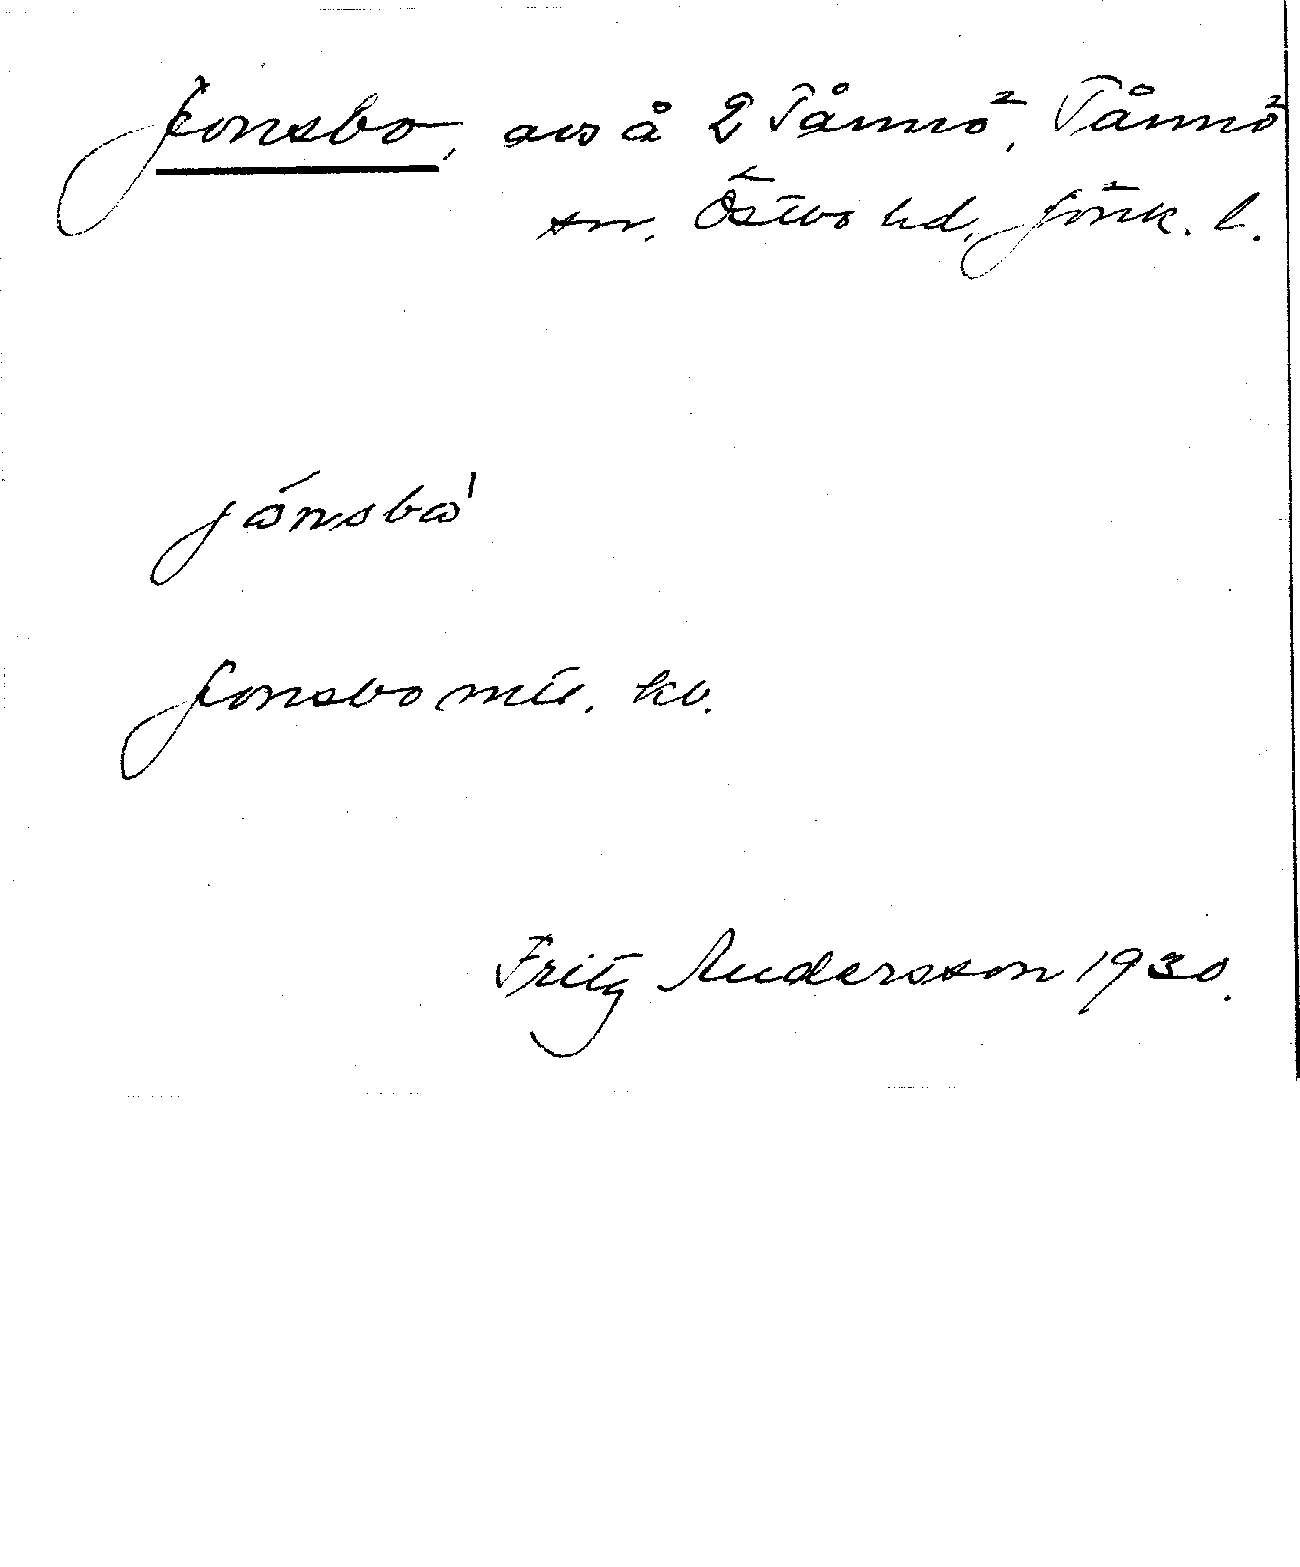 Jonsbo, avs å 2 Tånnö, Tånnö
sn. Östbo hd, Jönk. l.
Jonsbo mtl. kb.
Fritz Andersson 1930.